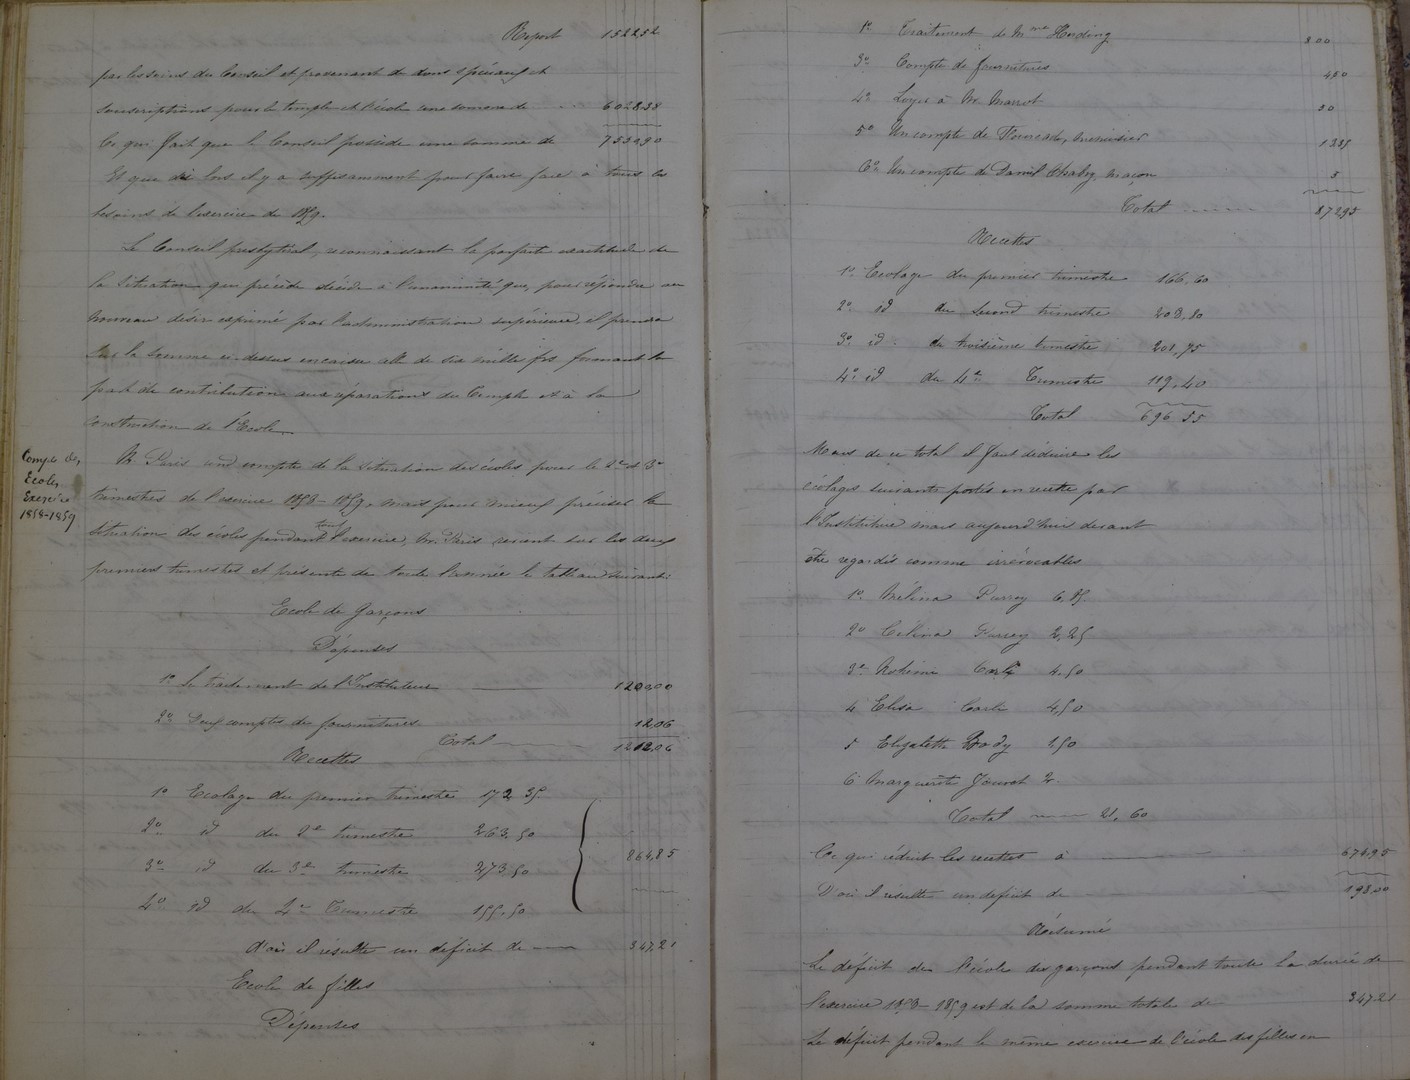 Report 1522 52
par les soins du Conseil et provenant de dons spéciaux et
souscriptions pour le temple et l'école une somme de 6028.38
Ce qui fait que le Conseil possède une somme de 7550 90
Et que dès lors il y a suffisamment pour faire face à tous les
besoins de l'exercice de 1859.
Le Conseil presbytéral, reconnaissant la parfaite exactitude de
la situation qui précède décide à l'unanimité que, pour répondre au
nouveau désir exprimé par l'administration supérieure, il prendra
sur la somme ci-dessus encaisse celle de six mille frs formant la
part de contribution aux réparations du Temple et à la
construction de l'Ecole.
Compte des
Ecoles
Exercice
1858-1859
M. Paris rend compte de la situation des écoles pour le 2e et 3e
trimestres de l'exercice 1858-1859, mais pour mieux préciser la
situation des écoles pendant tout l'exercice, M. Paris revient sur les deux
premiers trimestres et présente de toute l'année le tableau suivant:
Ecole de Garçons
Dépenses
1o Le traitement de l'Instituteur 1200,00
2o Deux comptes de fournitures 12,06
Total 1212,06
Recettes
1o Ecolage du premier trimestre 172 35
2o id du 2e trimestre 263.50
3o id du 3e trimestre 273.50
864,85
4o id du 4e Trimestre 155.50
d'où il résulte un déficit de 347,21
Ecole de filles
Dépenses
1o Traitement de Mme Harding 800
3o Compte de fournitures 4 50
4o Loyer à M. Marrot 50
5o Un compte de menuisier 13 35
6o Un compte de Daniel Chabry, maçon 5
Total 872,95
Recettes
1o Ecolage du premier trimestre 166,60
2o id du second trimestre 208,80
3o id. du troisième trimestre 201,75
4o id du 4e Trimestre 119,40
Total 696 55
Mais de ce total il faut déduire les
écolages suivants portés en recette par
l'Institutrice mais aujourd'hui devant
être regardés comme irrévocables
1o Mélina Purrey 6,85
2o Célina Purrey 2,25
3e Noémie Carle 4,50
4 Elisa Carle 4,50
5 Elizabeth Body 1,50
6 Marguerite Jouvot 2
Total 21,60
Ce qui réduit les recettes à 674,95
D'où il résulte un déficit de 198,00
Résumé
Le déficit de l'école des garçons pendant toute la durée de
l'exercice 1858-1859 est de la somme totale de 347,21
Le déficit pendant le même exercice de l'école des filles en